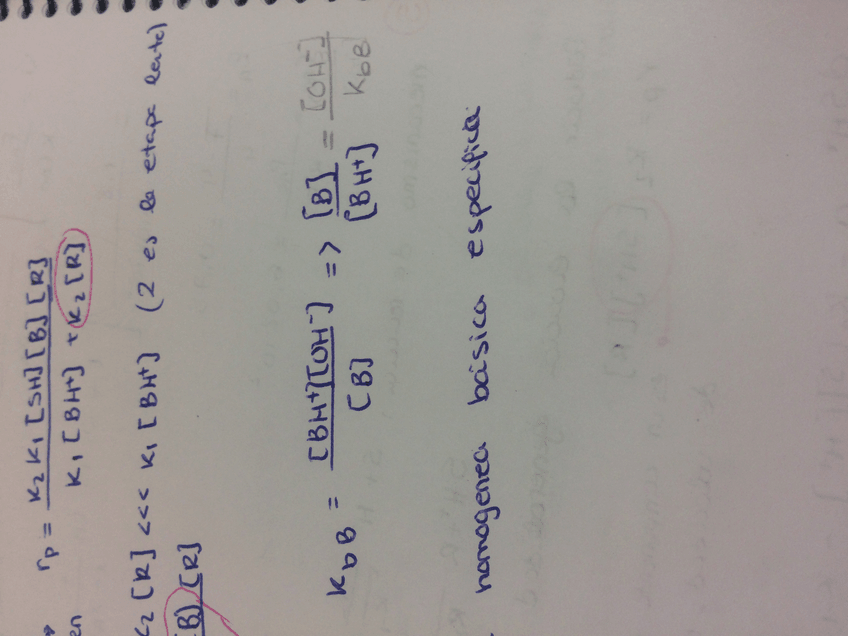 r_p = K₂ K₁ [SH][B][R] / K₁ [BH⁺] + K₂ [R]
K₂ [R] <<< K₁ [BH⁺] (2 es la etapa lenta)
[B] [R]
K_bB = [BH⁺][OH⁻] / [B] => [B] / [BH⁺] = [OH⁻] / K_bB
homogenea básica especifica